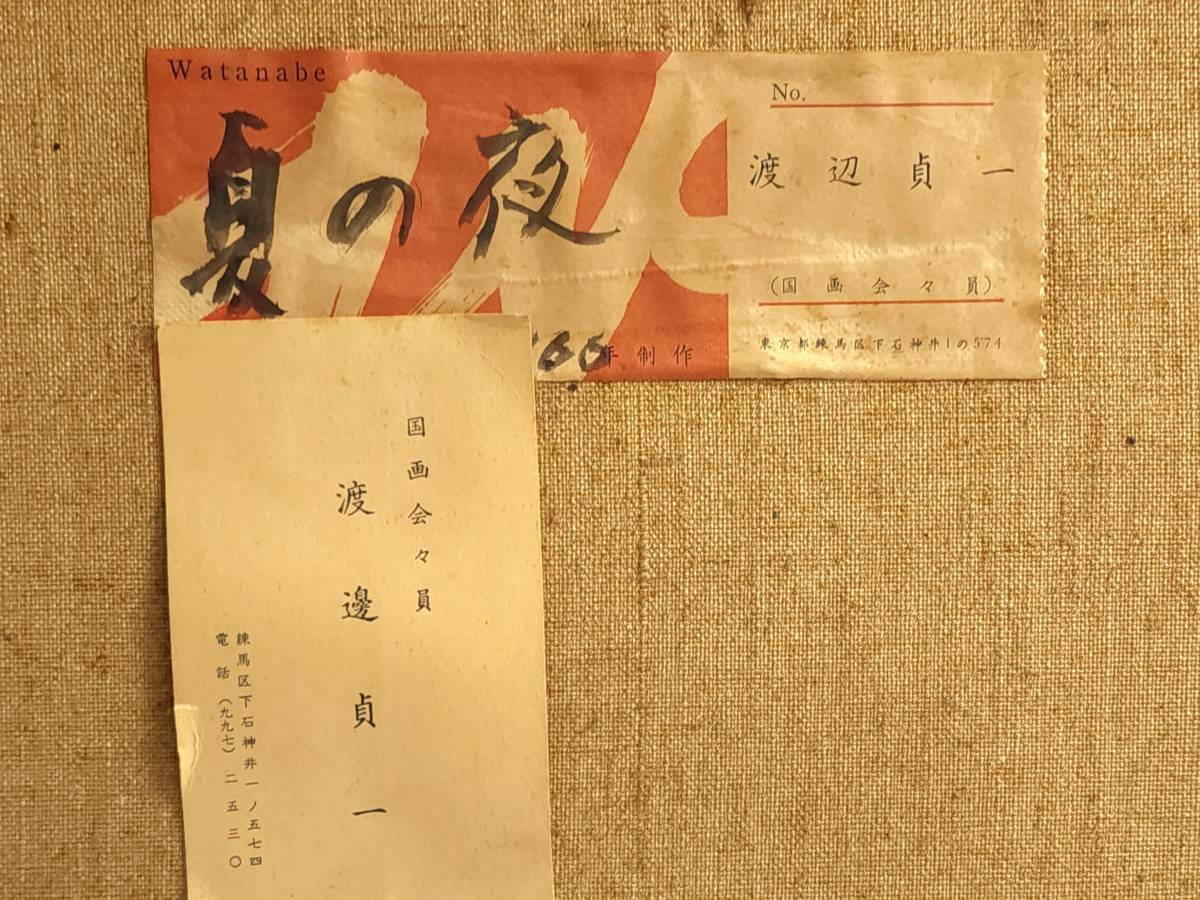 Watanabe
夏の夜
年制作
No.
渡辺貞一
(国画会々員)
東京都練馬区下石神井1の574
国画会々員
渡邊貞一
練馬区下石神井一ノ五七四
電話(九九七)二五三〇